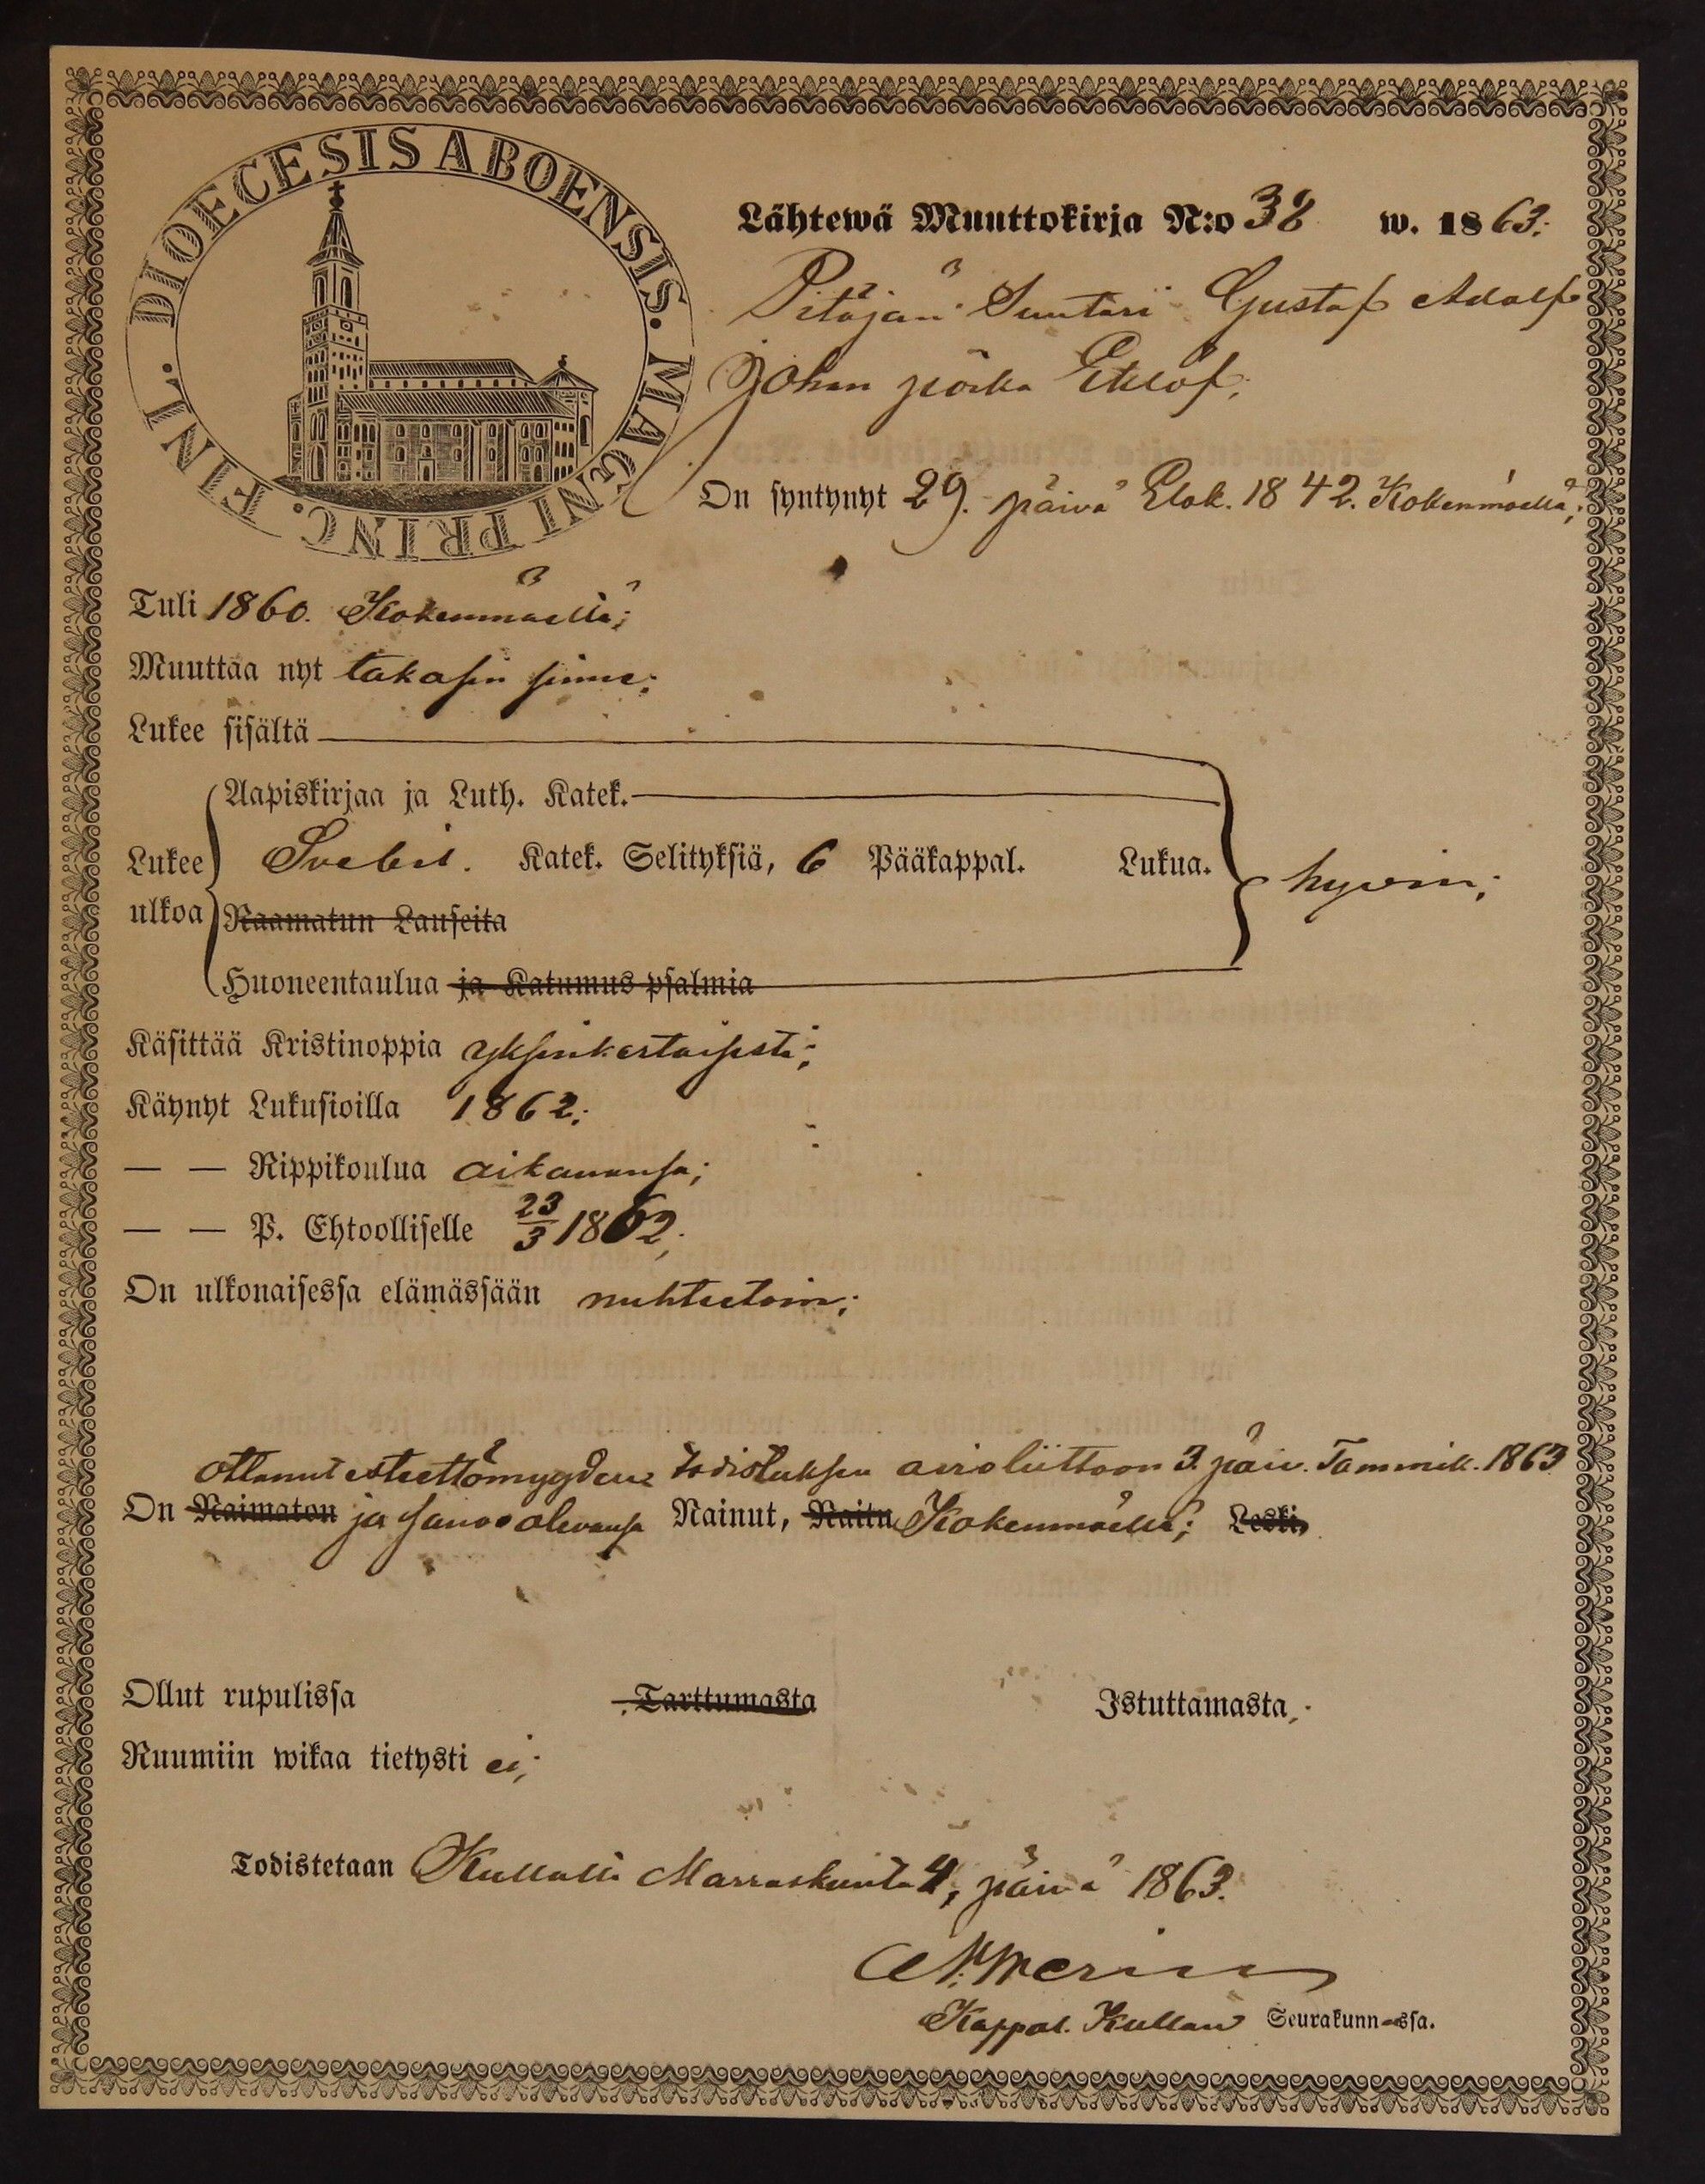 DIOECESIS ABOENSIS. MAGNI PRINC. FINL.
Lähtewä Muuttokirja N:o 38 w. 1863;
Pitäjän Suutari Gustaf Adolf
Johan poika Eklöf;
On syntynyt 29. päivä Elok. 1842. Kokenmäellä;
Tuli 1860. Kokenmäeltä;
Muuttaa nyt takasin sinne;
Lukee sisältä
Aapiskirjaa ja Luth. Katek.
Lukee Svebil. Katek. Selityksiä, 6 Pääkappal. Lukua. hyvin;
ulkoa Raamatun Lauseita
Huoneentaulua ja Katumus psalmia
Käsittää Kristinoppia yksinkertaisesti;
Käynyt Lukusioilla 1862;
— — Rippikoulua aikanansa;
— — P. Ehtoolliselle 23/3 1862;
On ulkonaisessa elämässään nuhteetoin;
ottanut esteettömyyden todistuksen avioliittoon 3. päiv. Tammik. 1863
On Naimaton ja sanoo olevansa Nainut, Naitu Kokenmäellä; Leski,
Ollut rupulissa Tarttumasta Istuttamasta,
Ruumiin wikaa tietysti ei;
Todistetaan Kullalla Marraskuuta 4, päivä 1863.
Kappal. Kullan Seurakunnassa.